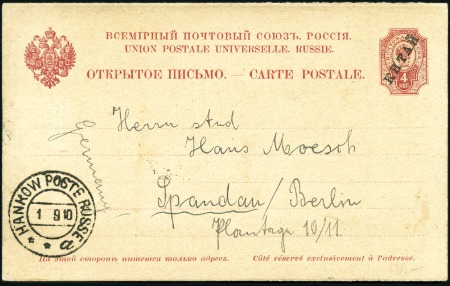 ВСЕМІРНЫЙ ПОЧТОВЫЙ СОЮЗЪ. РОССІЯ.
UNION POSTALE UNIVERSELLE. RUSSIE.
ОТКРЫТОЕ ПИСЬМО. — CARTE POSTALE.
КИТАЙ
4
Herrn stud
Hans Moesch
Germany
Spandau/Berlin
Plantage 10/11
HANKOW POSTE RUSSE
1 9 10
* * a
На этой сторонѣ пишется только адресъ. Côté réservé exclusivement à l'adresse.